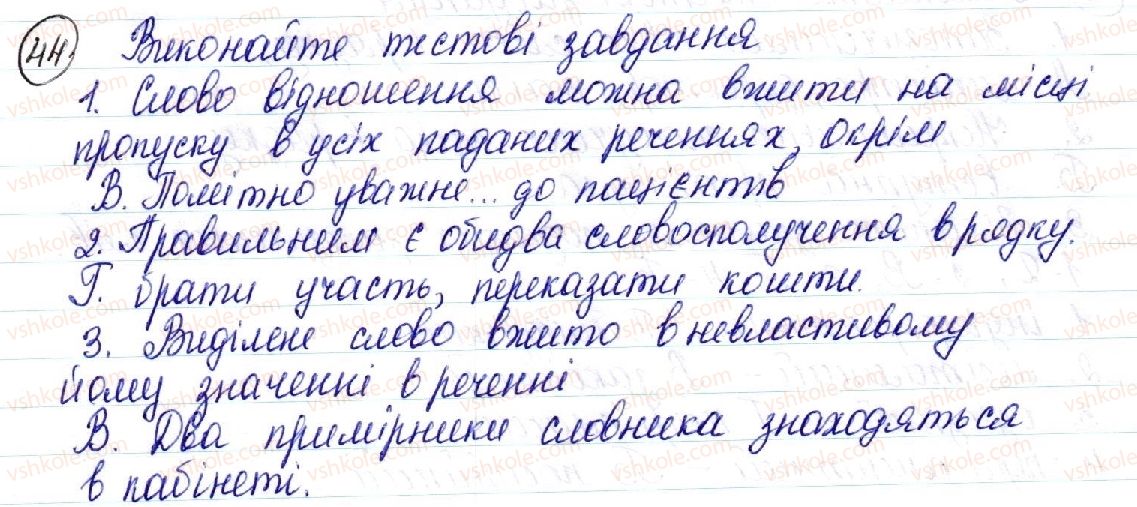 44. Виконайте тестові завдання
1. Слово відношення можна вжити на місці
пропуску в усіх паданих реченнях, окрім
В. Помітно уважне... до пацієнтів
2. Правильним є обидва словосполучення в рядку.
Г. брати участь, переказати кошти.
3. Виділене слово вжито в невластивому
йому значенні в реченні
В. Два примірники словника знаходяться
в кабінеті.